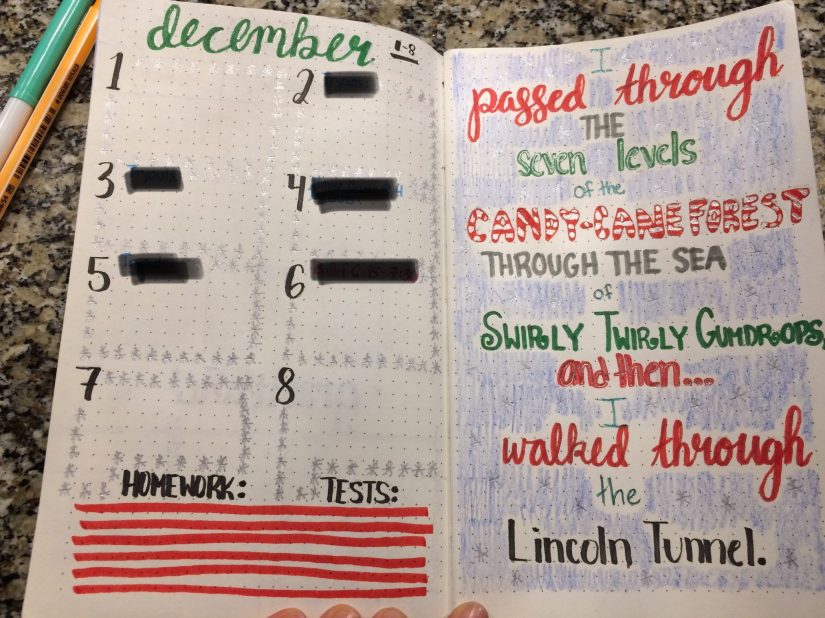 december 1-8
1
2
3
4
5
6
7
8
HOMEWORK: TESTS:
I
passed through
THE
seven levels
of the
CANDY-CANE FOREST
THROUGH THE SEA
of
SWIRLY TWIRLY GUMDROPS,
and then....
I
walked through
the
Lincoln Tunnel.